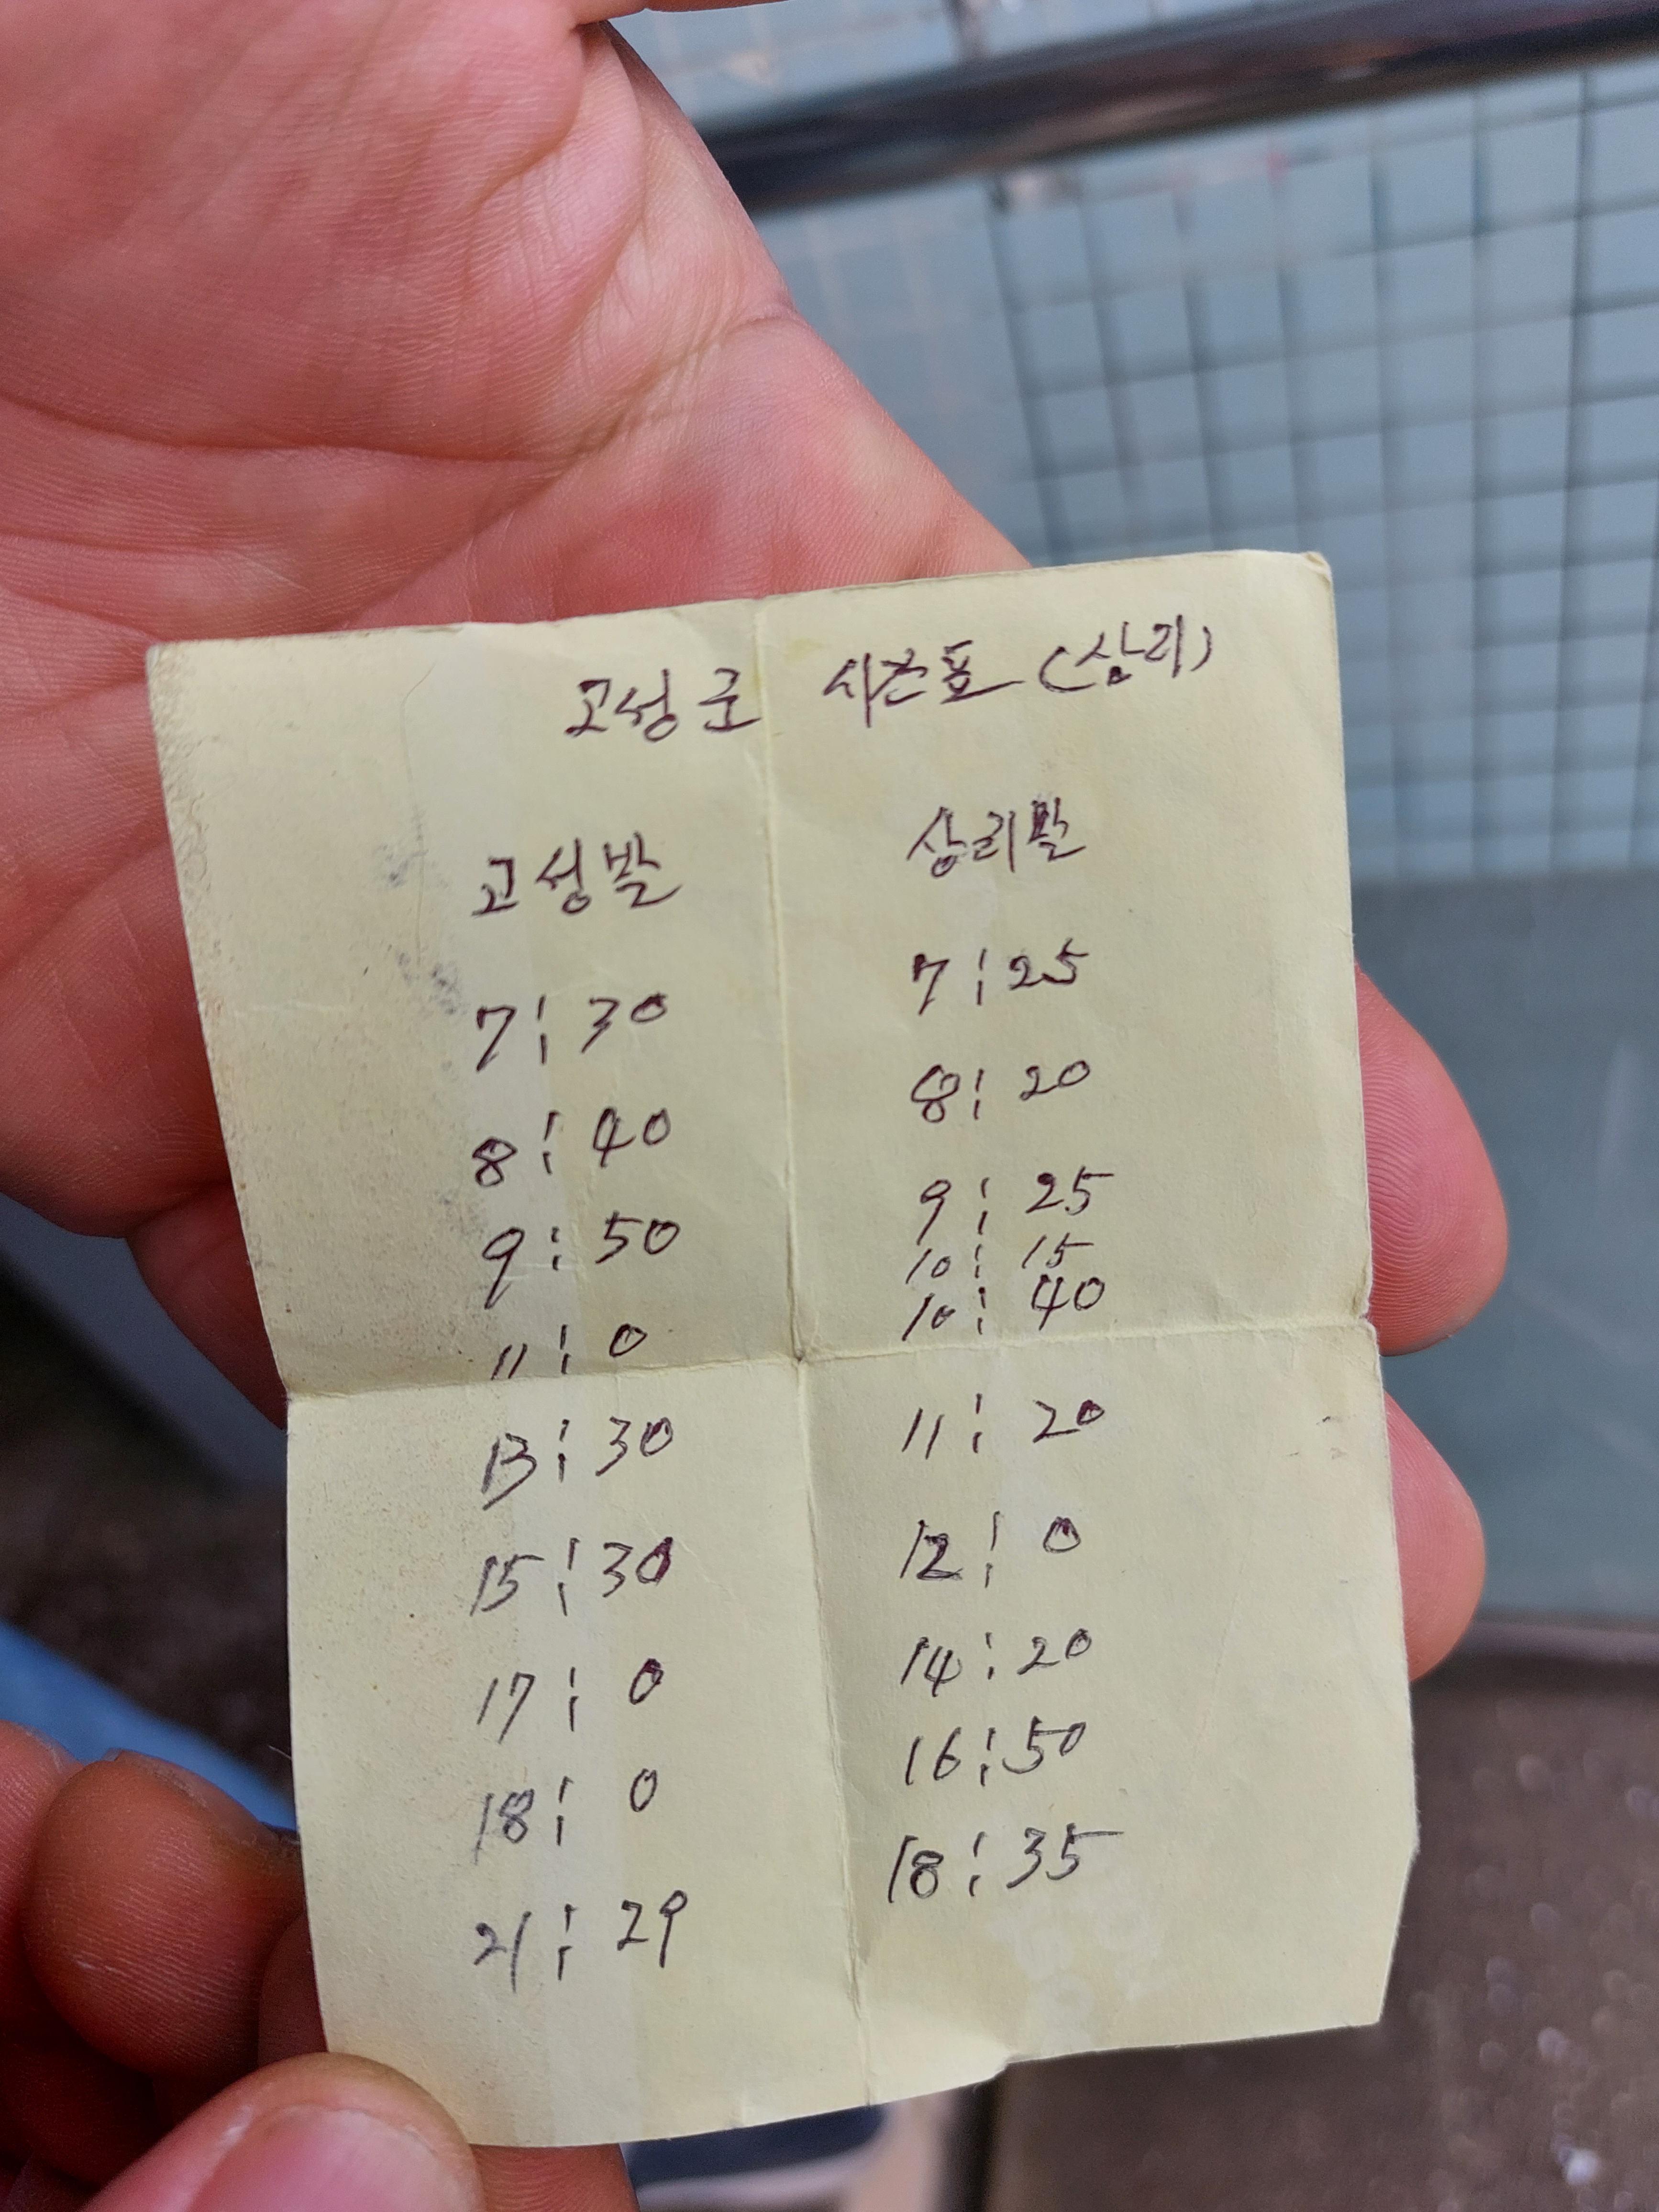 고성군 시간표 (상리)
고성발 상리발
7:30 7:25
8:40 8:20
9:50 9:25
10:15
11:0 10:40
13:30 11:20
15:30 12:0
17:0 14:20
18:0 16:50
21:29 18:35